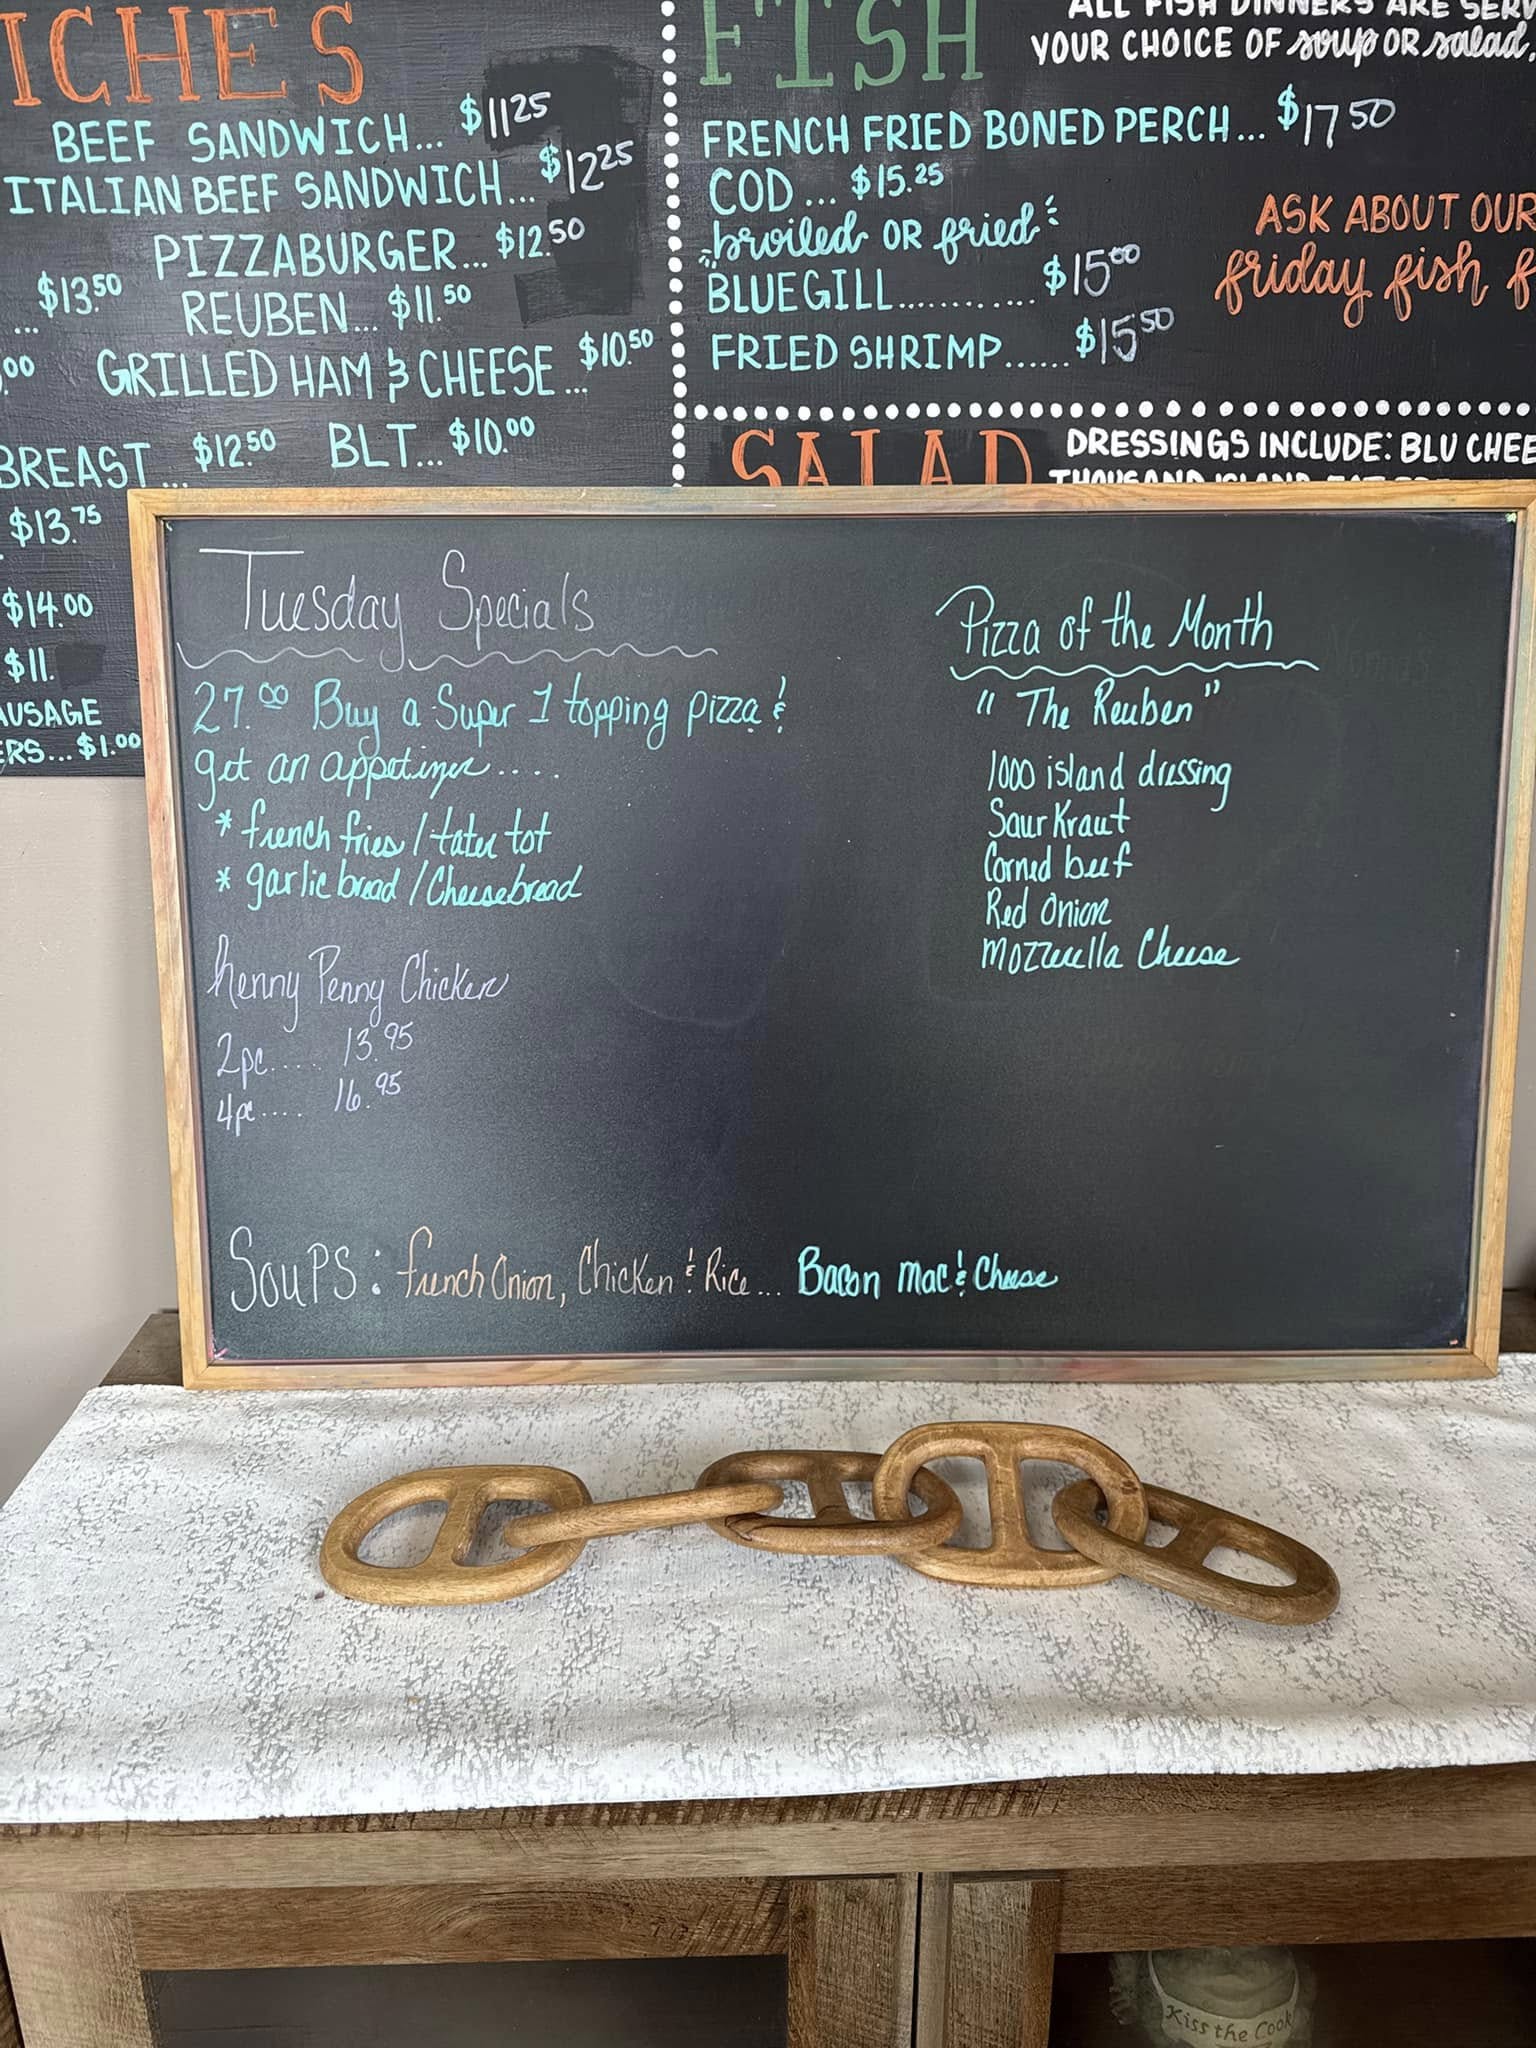 ICHES
BEEF SANDWICH... $11 25
ITALIAN BEEF SANDWICH... $12 25
PIZZABURGER... $12.50
... $13.50
REUBEN... $11.50
.00
GRILLED HAM & CHEESE... $10.50
BREAST... $12.50
BLT... $10.00
$13.75
$14.00
$11.
AUSAGE
ERS... $1.00
FISH
ALL FISH DINNERS ARE SERV
YOUR CHOICE OF soup OR salad,
FRENCH FRIED BONED PERCH... $17 50
COD... $15.25
broiled OR fried
BLUEGILL........... $15 00
FRIED SHRIMP...... $15 50
ASK ABOUT OUR
friday fish f
SALAD
DRESSINGS INCLUDE: BLU CHEE
THOUSAND ISLAND,
Tuesday Specials
27.00 Buy a Super 1 topping pizza &
get an appetizer.....
* french fries / tater tot
* garlic bread / Cheesebread
henny Penny Chicken
2pc..... 13.95
4pc..... 16.95
Pizza of the Month
"The Reuben"
1000 island dressing
Saurkraut
Corned beef
Red Onion
Mozzerella Cheese
Soups: french Onion, Chicken & Rice... Bacon mac & Cheese
Kiss the Cook